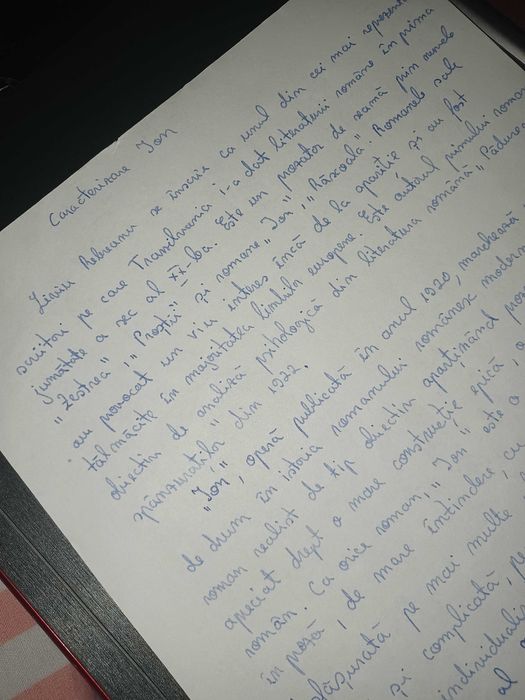 Caracterizare Ion
Liviu Rebreanu se înscrie ca unul din cei mai reprezent
scriitori pe care Transilvania i-a dat literaturii române în prima
jumătate a sec al XX-lea. Este un prozator de seamă prin nuvele
"Zestrea", "Proștii" și romane "Ion", "Răscoala". Romanele sale
au provocat un viu interes încă de la apariție și au fost
tălmăcite în majoritatea limbilor europene. Este autorul primului roman
obiectiv de analiză psihologică din literatura română "Pădurea
spânzuraților" din 1922.
"Ion", operă publicată în anul 1920, marchează
de drum în istoria romanului românesc modern
roman realist de tip obiectiv aparținând
apreciat drept o mare construcție epică, o
român. Ca orice roman, "Ion" este o
în proză, de mare întindere, cu
desfășurată pe mai multe
și complicată,
individuali
al